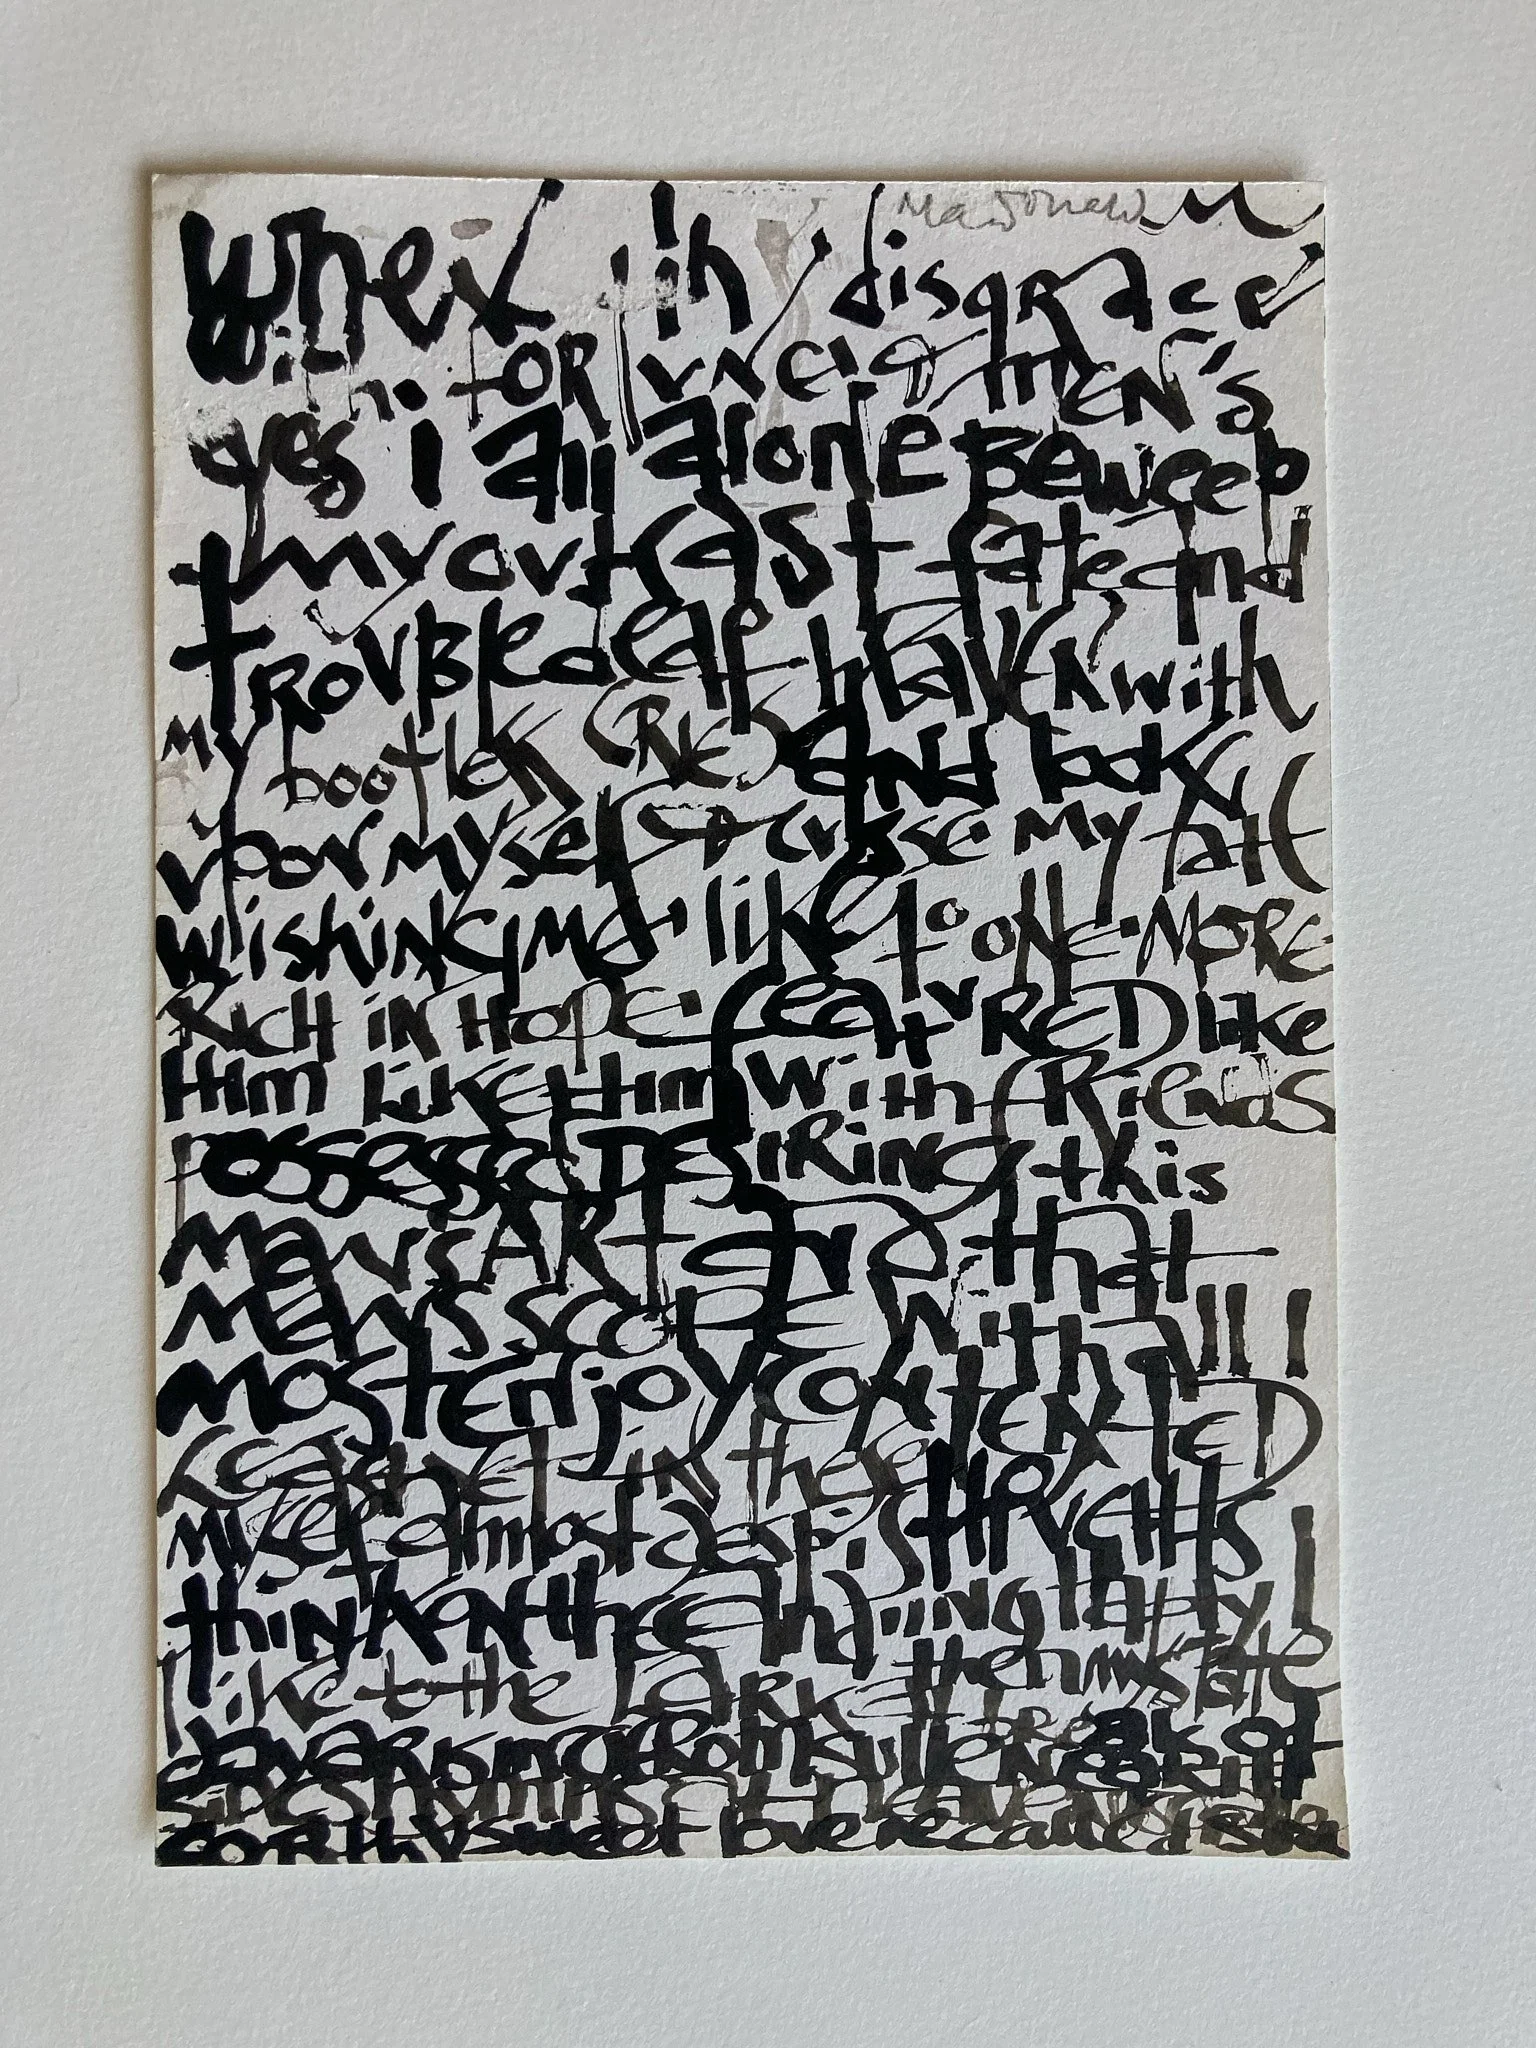 MacDonald
When in disgrace
with FORtvne & mEN's
eyes i all alone Beweep
my ovtcast fate and
tRovBle deaf heaven with
my bootless CRIES and look
vpon myself & cvrse my fate
wishing me like to one MORE
RICH iN HOPE featvRED like
Him like Him with fRiends
possessed DESiRiNG this
man's ARt and that
MEN's SCOPE with all i
most Enjoy CONtENTED
Least yet in these tHOVGHTS
myself almost despising
think on thee and
like to the LARK then my state
at break of
from sullen
sings hymns at heaven's gate
FOR thy sweet love